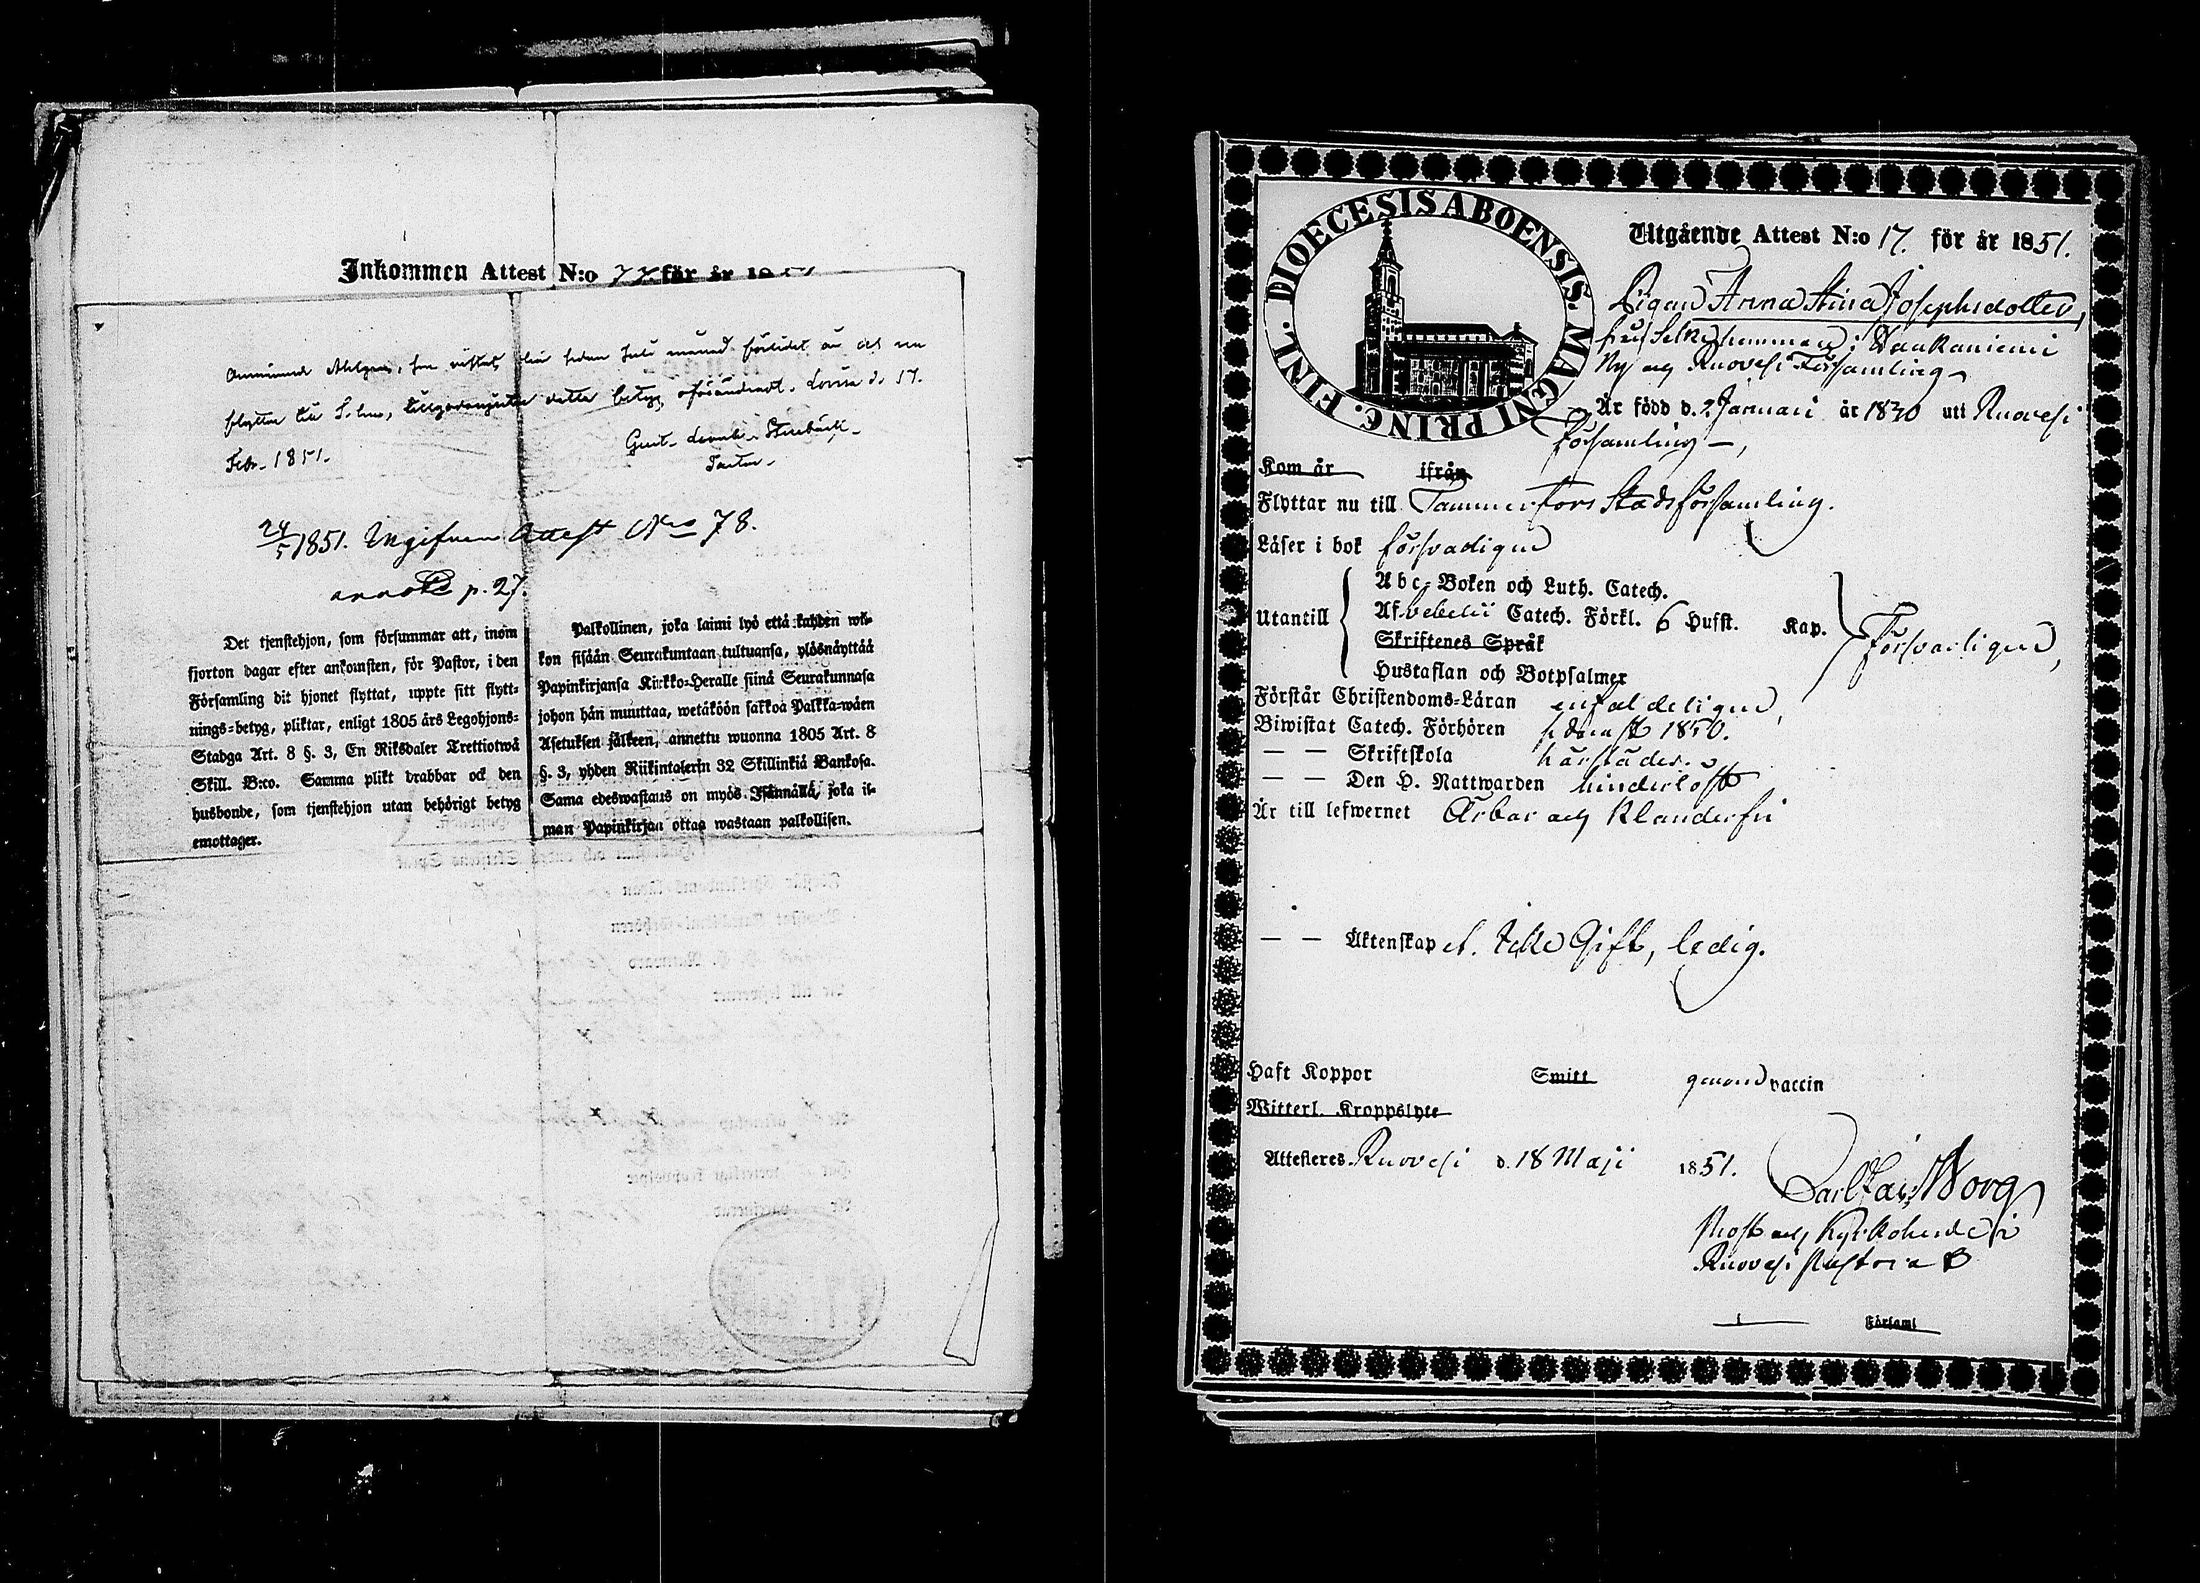 Inkommen Attest N:o 77 för år 1851
flyttar till
detta betyg oförändradt. Lovisa d. 17.
Febr. 1851.
Pastor.
24/5 1851. Ingifven Attest No 78.
p. 27.
Det tjenstehjon, som försummar att, inom
fjorton dagar efter ankomsten, för Pastor, i den
Församling dit hjonet flyttat, uppte sitt flytt-
nings-betyg, pliktar, enligt 1805 års Legohjons-
Stadga Art. 8 §. 3, En Riksdaler Trettiotwå
Skill. B:co. Samma plikt drabbar ock den
husbonde, som tjenstehjon utan behörigt betyg
emottager.
Palkollinen, joka laimi lyö että kahden wii-
kon sisään Seurakuntaan tultuansa, ylösnäyttää
Papinkirjansa Kirkko-Heralle siinä Seurakunnasa
johon hän muuttaa, wetäköön sakkoa Palkka-wäen
Asetuksen jälkeen, annettu wuonna 1805 Art. 8
§. 3, yhden Riikintalerin 32 Skillinkiä Bankosa.
Sama edeswastaus on myös Isännällä, joka il-
man Papinkirjan ottaa wastaan palkollisen.
DIOECESIS ABOENSIS. MAGNI PRINC. FINL.
Utgående Attest N:o 17. för år 1851.
Pigan Anna Stina Josephsdotter,
från hemman i Waakaniemi
By och Ruovesi Församling
Är född d. 2 Januari år 1830 uti Ruovesi
Församling —,
Kom år ifrån
Flyttar nu till Tammerfors Stadsförsamling.
Läser i bok försvarligen
Utantill
Abc-Boken och Luth. Catech.
Afvebelii Catech. Förkl. 6 Hufst. Kap.
Skriftenes Språk
Hustaflan och Botpsalmer
Försvarligen,
Förstår Christendoms-Läran enfaldeligen,
Biwistat Catech. Förhören sednast 1850.
— — Skriftskola härstädes.
— — Den H. Nattwarden hinderlöst
Är till lefwernet Ärbar och Klanderfri
— — Äktenskapet. Icke Gift, ledig.
Haft Koppor Smitt genom vaccin
Witterl. Kroppslyte
Attesteres Ruovesi d. 18 Maji 1851.
Prost och Kyrkoherde i
Ruovesi Pastorat
Församl